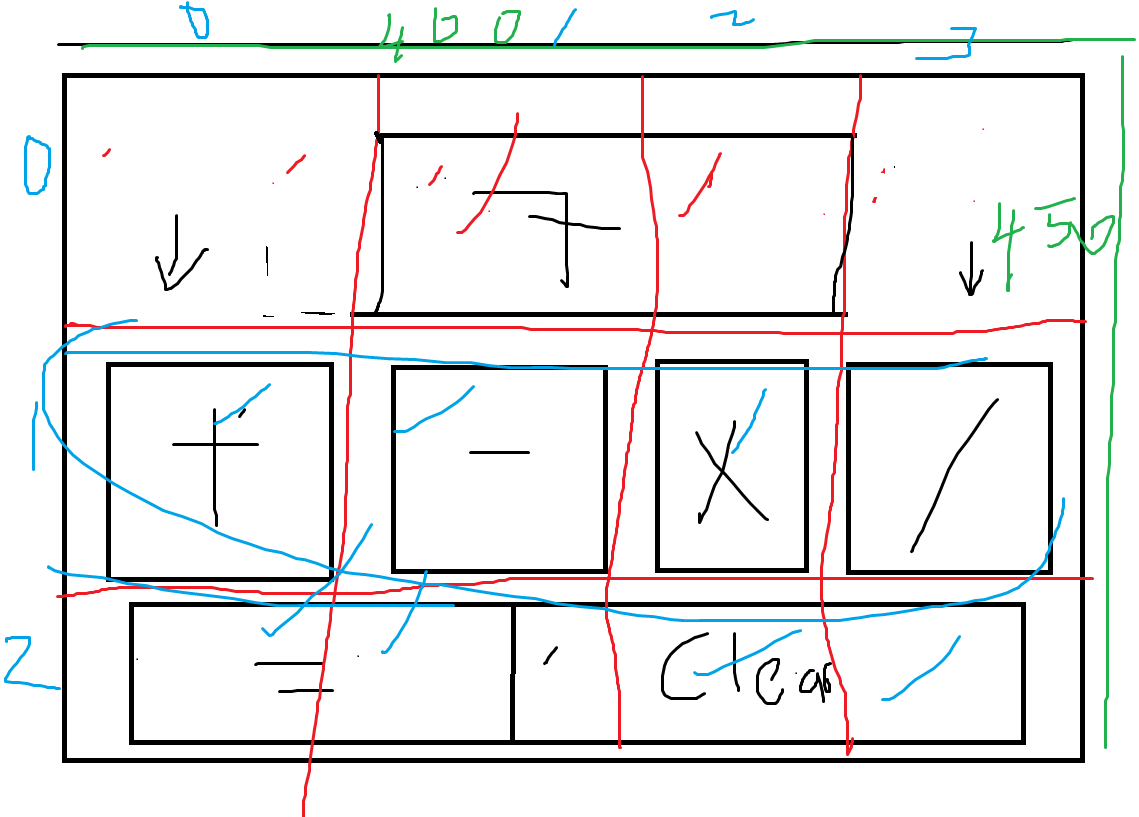 0 400 1 2 3
0
450
1 + - x /
2 = Clear